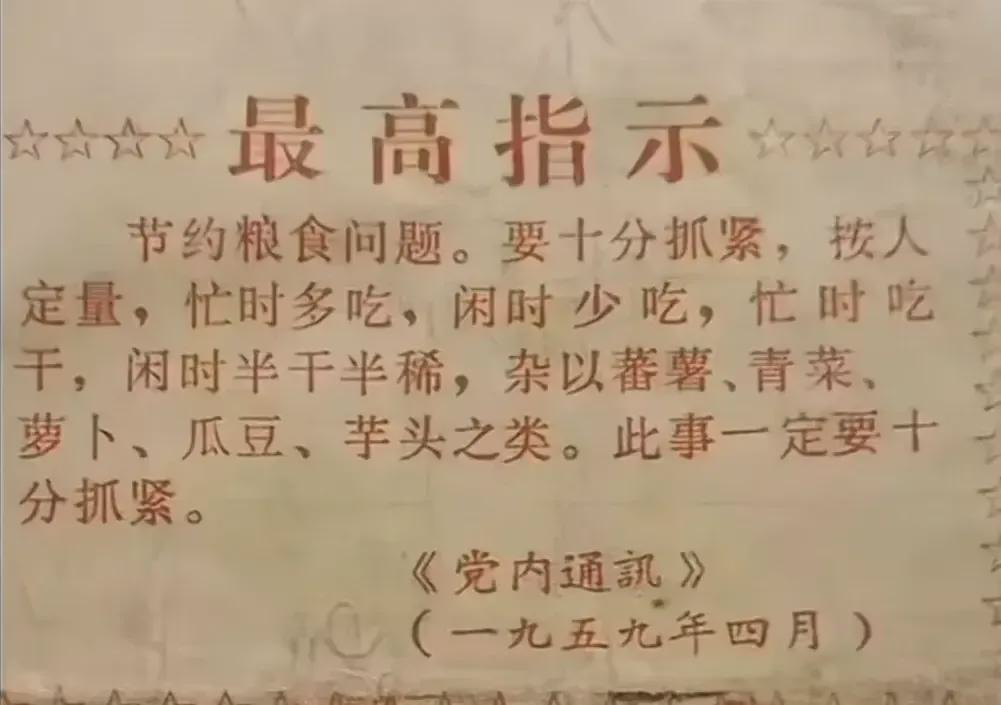 最高指示
节约粮食问题。要十分抓紧，按人
定量，忙时多吃，闲时少吃，忙时吃
干，闲时半干半稀，杂以蕃薯、青菜、
萝卜、瓜豆、芋头之类。此事一定要十
分抓紧。
《党内通訊》
（一九五九年四月）